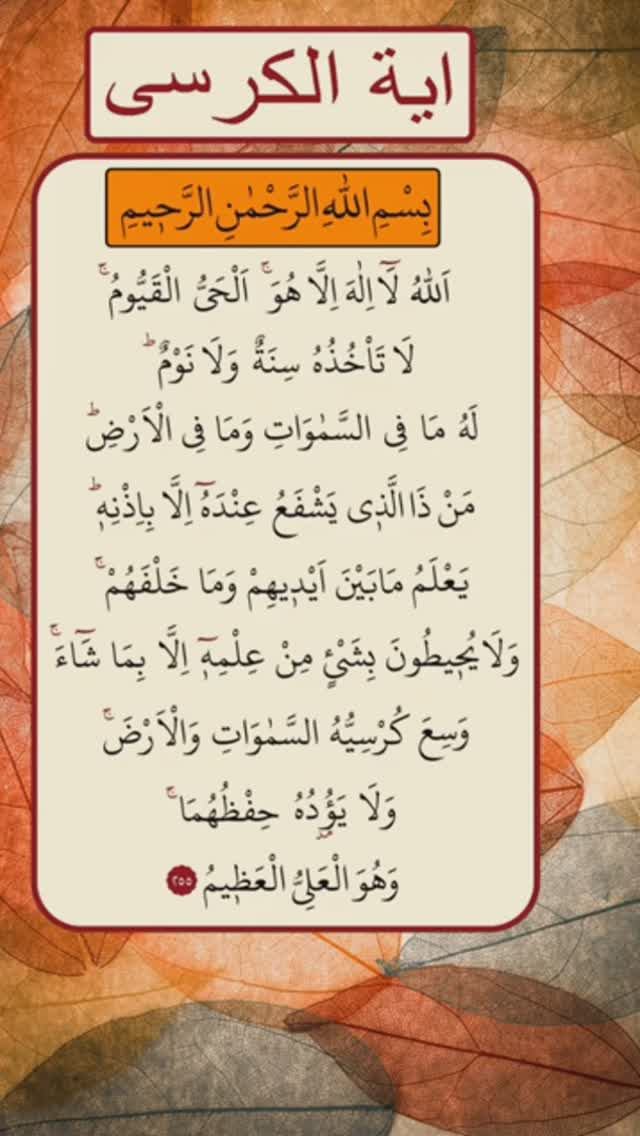 اية الكرسى
بِسْمِ اللّٰهِ الرَّحْمٰنِ الرَّح۪يمِ
اَللّٰهُ لَٓا اِلٰهَ اِلَّا هُوَۚ اَلْحَىُّ الْقَيُّومُۚ
لَا تَاْخُذُهُ سِنَةٌ وَلَا نَوْمٌۜ
لَهُ مَا فِى السَّمٰوَاتِ وَمَا فِى الْاَرْضِۜ
مَنْ ذَا الَّذ۪ى يَشْفَعُ عِنْدَهُٓ اِلَّا بِاِذْنِه۪ۜ
يَعْلَمُ مَابَيْنَ اَيْد۪يهِمْ وَمَا خَلْفَهُمْۚ
وَلَا يُح۪يطُونَ بِشَىْءٍ مِنْ عِلْمِه۪ٓ اِلَّا بِمَا شَٓاءَۚ
وَسِعَ كُرْسِيُّهُ السَّمٰوَاتِ وَالْاَرْضَۚ
وَلَا يَؤُ۫دُهُ حِفْظُهُمَاۚ
وَهُوَ الْعَلِىُّ الْعَظ۪يمُ ٢٥٥